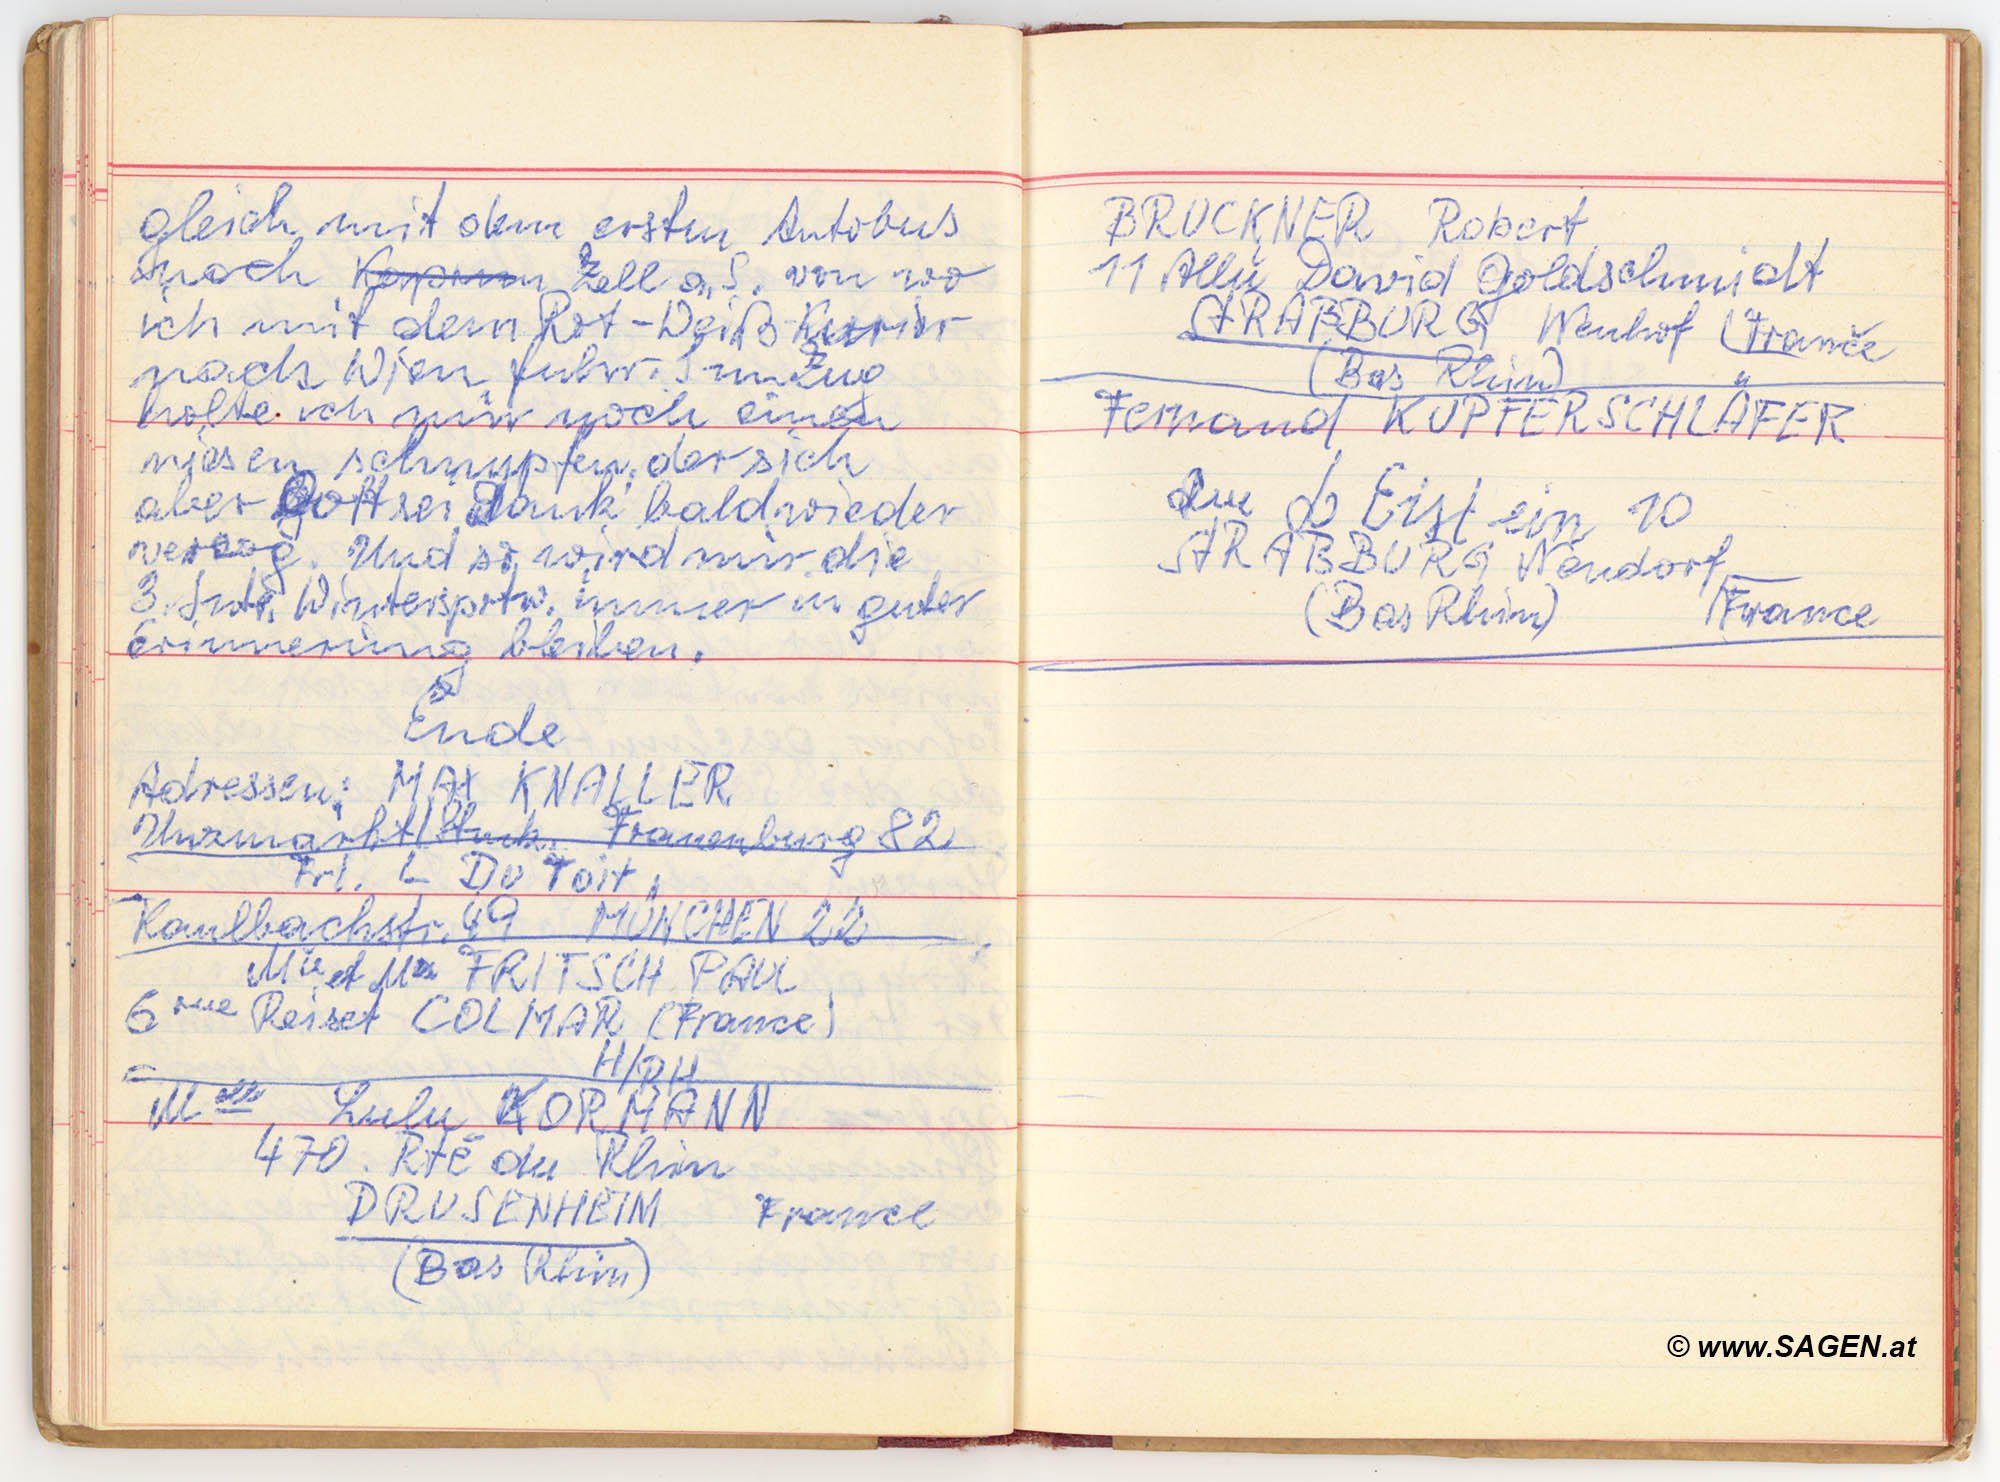 gleich mit dem ersten Autobus
nach Kaprun Zell a. S. von wo
ich mit dem Rot-Weiß-Kurier
nach Wien fuhr. Im Zug
holte ich mir noch einen
riesen schnupfen, der sich
aber Gott sei Dank bald wieder
verzog. Und so wird mir die
3. Int. Wintersportw. immer in guter
Erinnerung bleiben.
Ende
Adressen: MAX KNALLER
Unzmarkt/ Frauenburg 82
Frl. L Du Toit,
Kaulbachstr. 49 MÜNCHEN 22
et FRITSCH PAUL
6 rue Reiset COLMAR (France)
H/RH
Mlle Lulu KORMANN
470. Rte du Rhin
DRUSENHEIM France
(Bas Rhin)
BRUCKNER Robert
11 Allee David Goldschmidt
STRAßBURG Neuhof (France
(Bas Rhin)
Fernand KUPFERSCHLÄFER
Eist ein 10
STRAßBURG Neudorf
(Bas Rhin) (France
© www.SAGEN.at